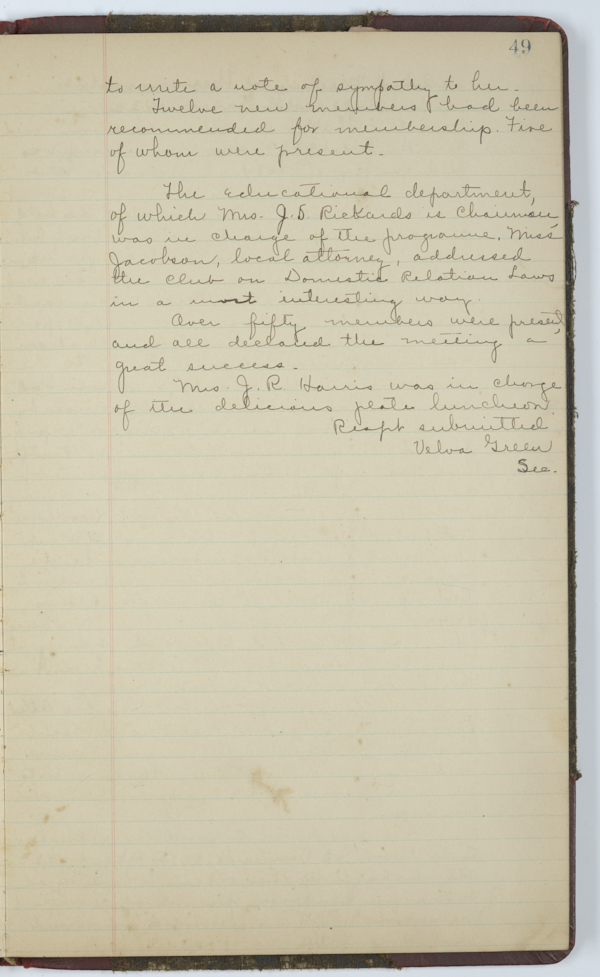 49
to write a note of sympathy to her.
Twelve new members had been
recommended for membership. Five
of whom were present.
The Educational department,
of which Mrs. J. S. Rickards is Chairman
was in charge of the programe. Miss
Jacobson, local attorney, addressed
the Club on Domestic Relation Laws
in a most interesting way.
Over fifty members were present,
and all declared the meeting a
great success.
Mrs. J. R. Harris was in charge
of the delicious plate luncheon.
Respt submitted
Velva Green
Sec.